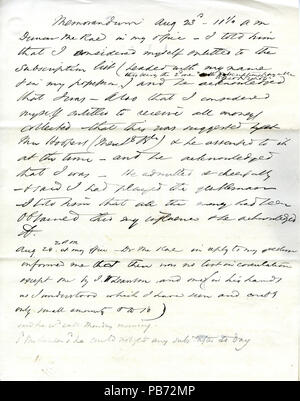 Memorandum Aug 23d 11½ a m
Duncan McRae in my office - I told him
that I considered myself entitled to the
Subscription list (headed with my name
& in my possession) and he acknowledged
that I was - Also that I considered
myself entitled to receive all money
collected - that this was suggested by
Mrs Rogers & he assented to it
at the time - and he acknowledged
that I was - He admitted
& said I had played the gentleman
I told him that all the money had been
obtained thro my influence & he acknowledged
it
Aug 20 2 PM at my office Dr McRae in reply to my
informed me that there was no list in circulation
except one by J and one in his hands
as I understood which I have seen and
only small amounts
said he would call Monday morning
he could not get any subs after to day
alamy
Image ID: PB72MP
www.alamy.com